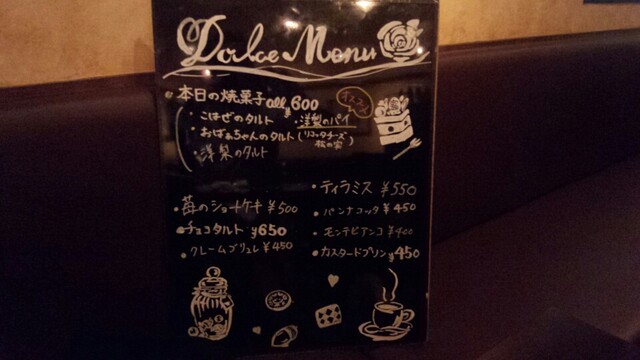 Dolce Menu
・本日の焼菓子 all ¥600
オススメ
・こはぜのタルト ・洋梨のパイ
・おばあちゃんのタルト(リコッタチーズ 松の実)
・洋梨のタルト
・苺のショートケーキ ¥500
・チョコタルト ¥650
・クレームブリュレ ¥450
・ティラミス ¥550
・パンナコッタ ¥450
・モンテビアンコ ¥400
・カスタードプリン ¥450